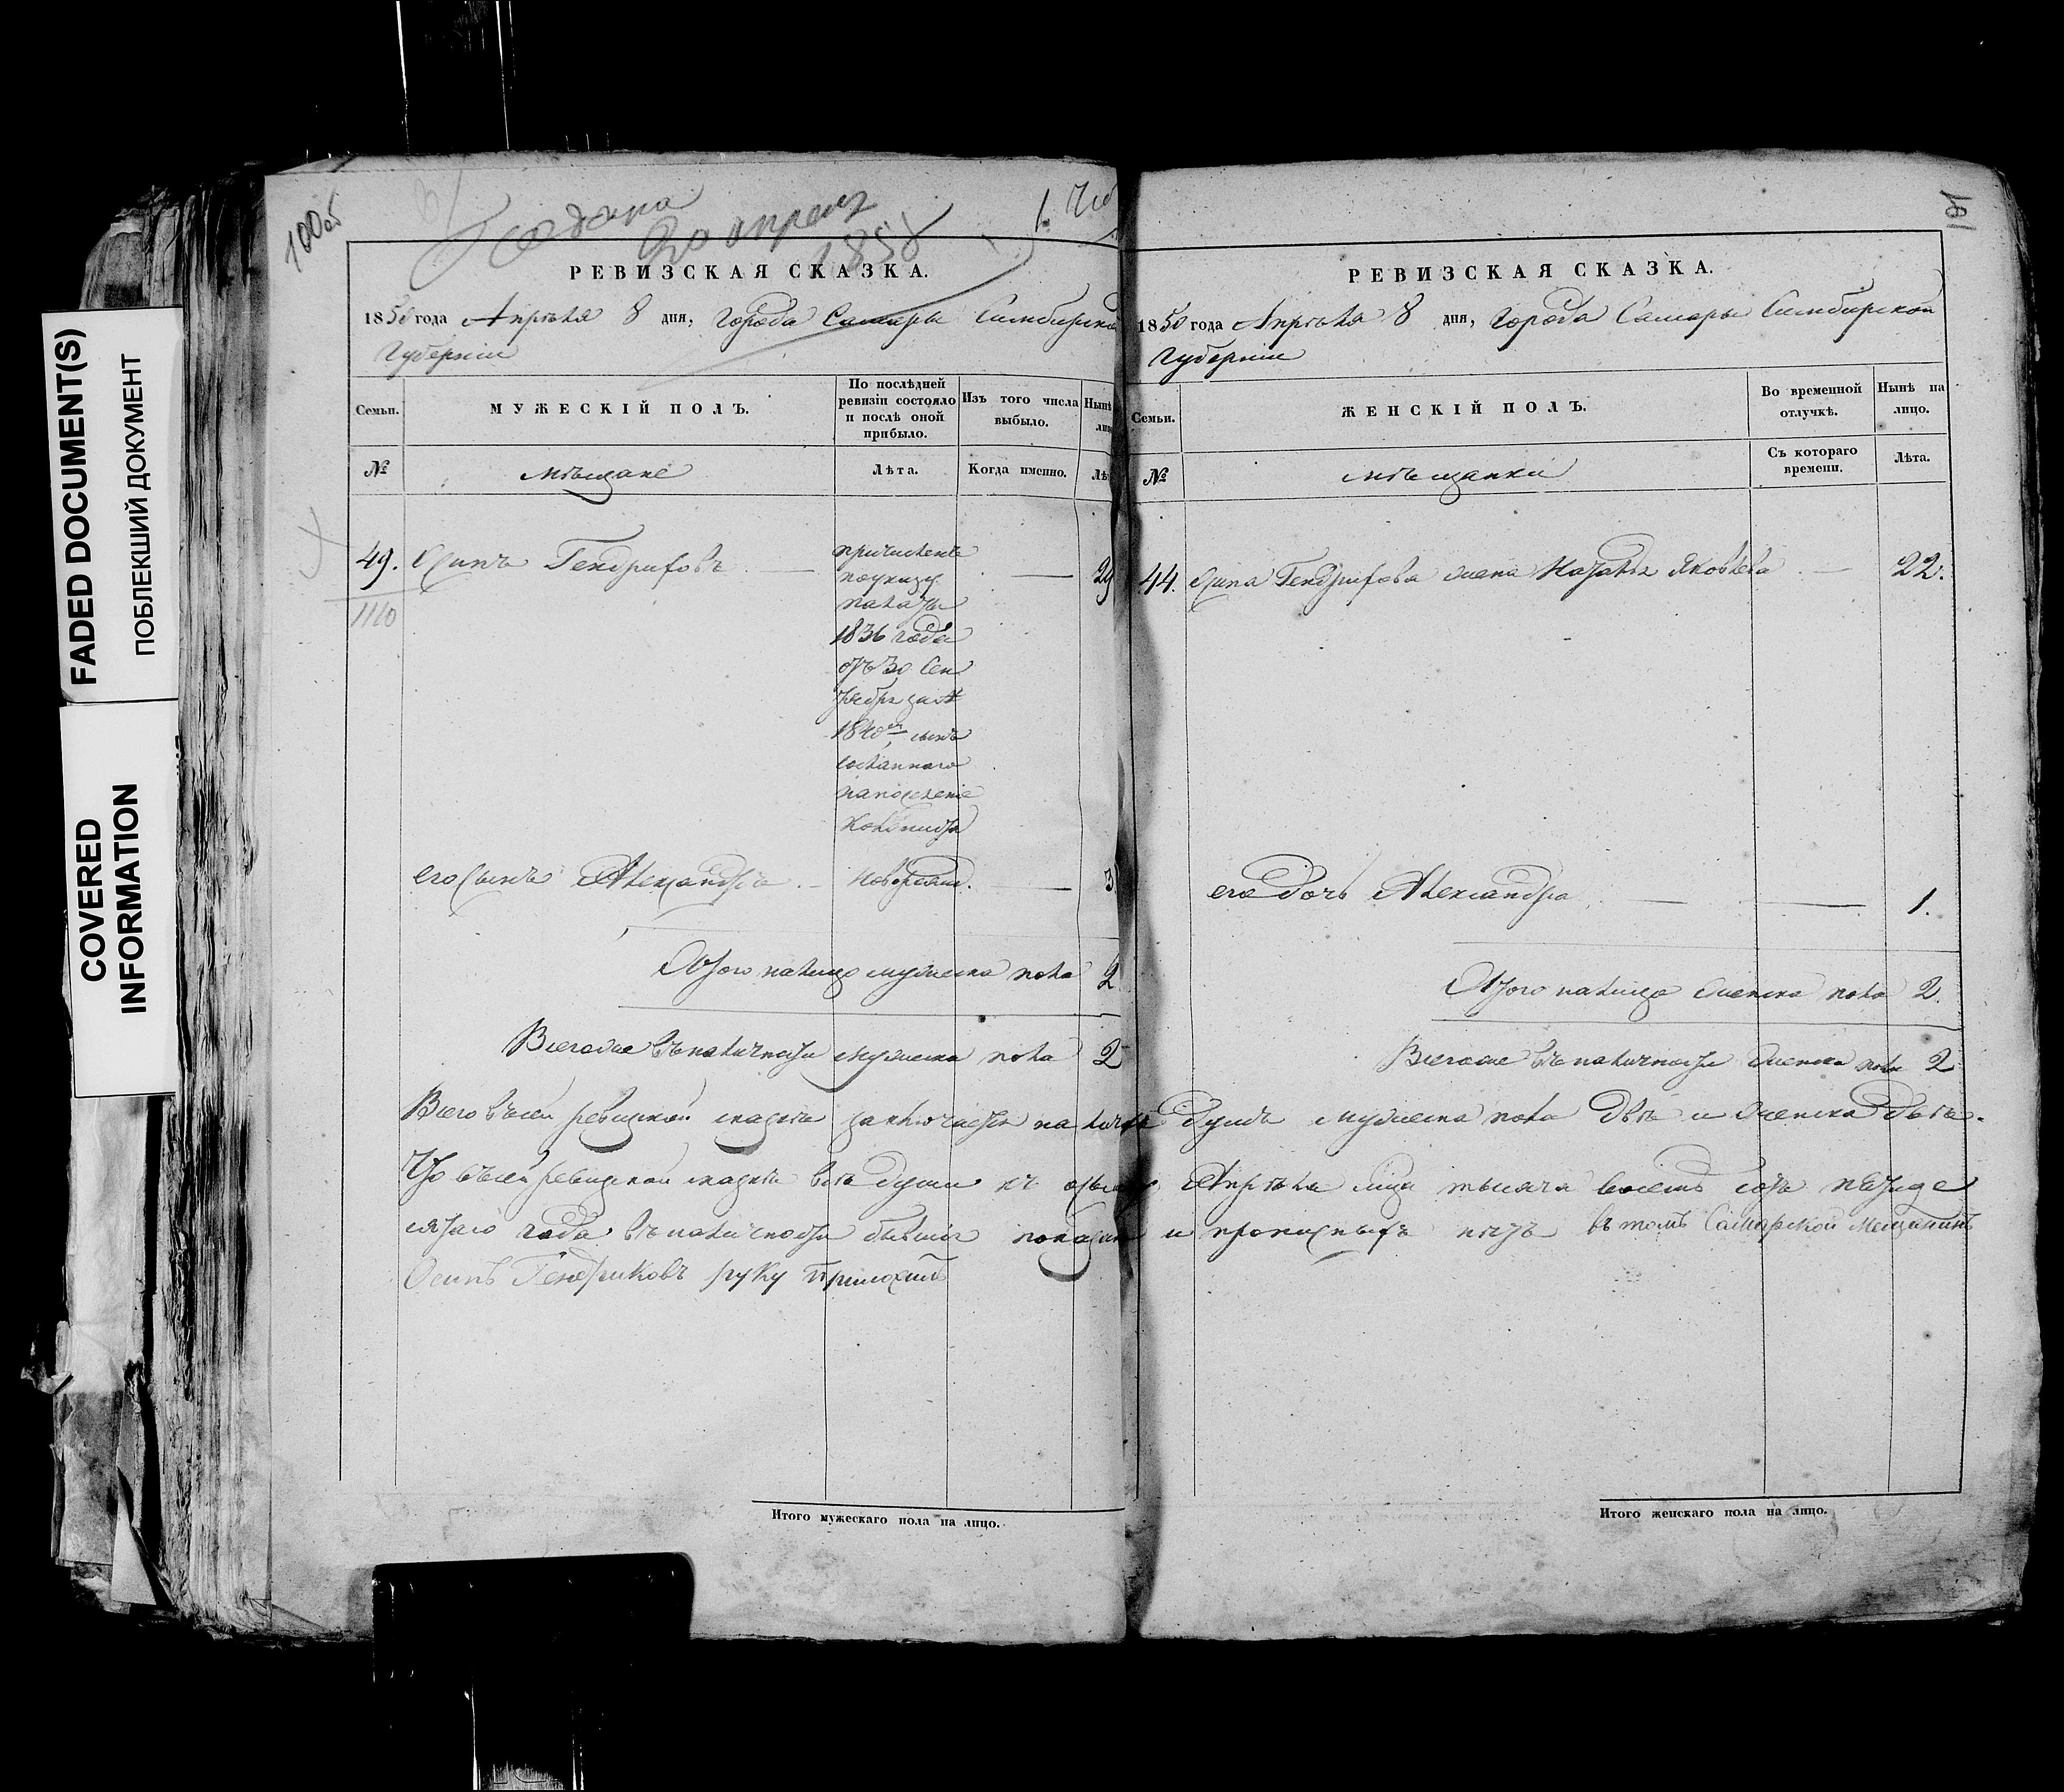 FADED DOCUMENT(S)
ПОБЛЕКШИЙ ДОКУМЕНТ
COVERED
INFORMATION
100об
20 апреля
1858
РЕВИЗСКАЯ СКАЗКА.
1850 года Апрѣля 8 дня, города Самары Симбирской
губернiи
Семьи.
МУЖЕСКIЙ ПОЛЪ.
По послѣдней
ревизiи состояло
и послѣ оной
прибыло.
Изъ того числа
выбыло.
Нынѣ
№
мѣщане
Лѣта.
Когда именно.
49. Осипъ Гендриховъ
29
1110
причисленъ
по указу
палаты
1836 года
отъ 30 Сен
тября за №
сынъ
сосланнаго
на поселенiе
его сынъ Александръ новорожд. 3
Итого налицо мужеска пола 2
Всего же въ наличности мужеска пола 2
101
РЕВИЗСКАЯ СКАЗКА.
1850 года Апрѣля 8 дня, города Самары Симбирской
губернiи
Семьи.
ЖЕНСКIЙ ПОЛЪ.
Во временной
отлучкѣ.
Нынѣ на
лицо.
№
мѣщанки
Съ котораго
времени.
Лѣта.
44. Осипа Гендрихова жена Наталья Яковлева 22.
его дочь Александра 1.
Итого налицо женска пола 2.
Всего же въ наличности женска пола 2
Всего въ сей ревизской сказкѣ заключается на лицо душъ мужеска пола двѣ и женска двѣ.
Что въ сей ревизской сказкѣ всѣ души къ Апрѣля тысяча восемь сотъ пятьде
сятаго года въ наличности бывшiя показаны и прописныхъ нѣтъ въ томъ Самарской мещанинъ
Осипъ Гендриковъ руку приложилъ
Итого мужескаго пола на лицо.
Итого женскаго пола на лицо.